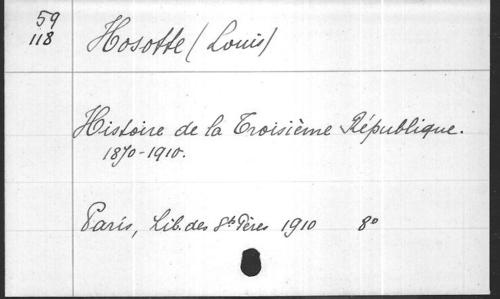 59
118
Hosotte (Louis)
Histoire de la Troisième République.
1870-1910.
Paris, Lib. des Sts Pères 1910 8°